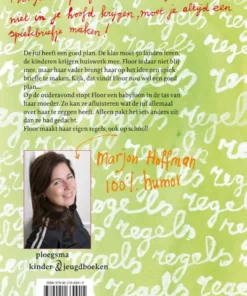 niet in je hoofd krijgen, moet je altijd een
spiekbriefje maken!
De juf heeft een goed plan. De klas moet 50 landen leren:
de kinderen krijgen huiswerk mee. Floor is daar niet blij
mee, maar haar vader brengt haar op het idee een spiek-
briefje te maken. Kijk, dat vindt Floor nou wel een goed
plan...
Op de ouderavond stopt Floor een babyfoon in de tas van
haar moeder. Zo kan ze afluisteren wat de juf allemaal
over haar te zeggen heeft. Alleen pakt het iets anders uit
dan ze had gedacht.
Floor maakt haar eigen regels, ook op school!
regels
Marjon Hoffman
100% humor
ploegsma
kinder & jeugdboeken